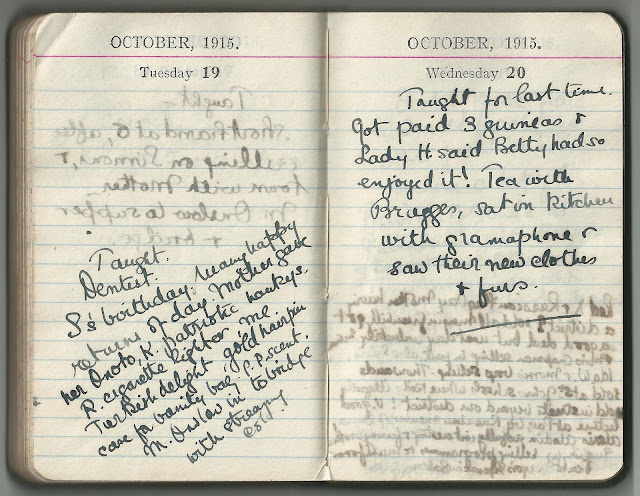 OCTOBER, 1915.
Tuesday 19
Taught.
Dentist.
S's birthday: Many happy
returns of day. Mother gave
her Onoto, K. Patriotic hankys.
R. cigarette lighter, me
Turkish delight, gold hairpin
case for vanity bag, P.P. scent.
M. Onslow in to bridge
with streaming
cold
OCTOBER, 1915.
Wednesday 20
Taught for last time.
Got paid 3 guineas &
Lady H. said Betty had so
enjoyed it! Tea with
Brugges, sat in kitchen
with gramaphone &
saw their new clothes
& furs.